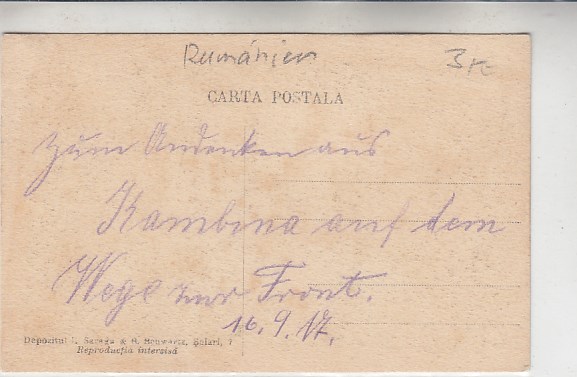 Rumänien
3,-
CARTA POSTALA
Zum Andenken aus
Kambina auf dem
Wege zur Front.
16.9.17.
Depozitul I. Saraga & S. Schwartz, Șelari, 7
Reproducția interzisă